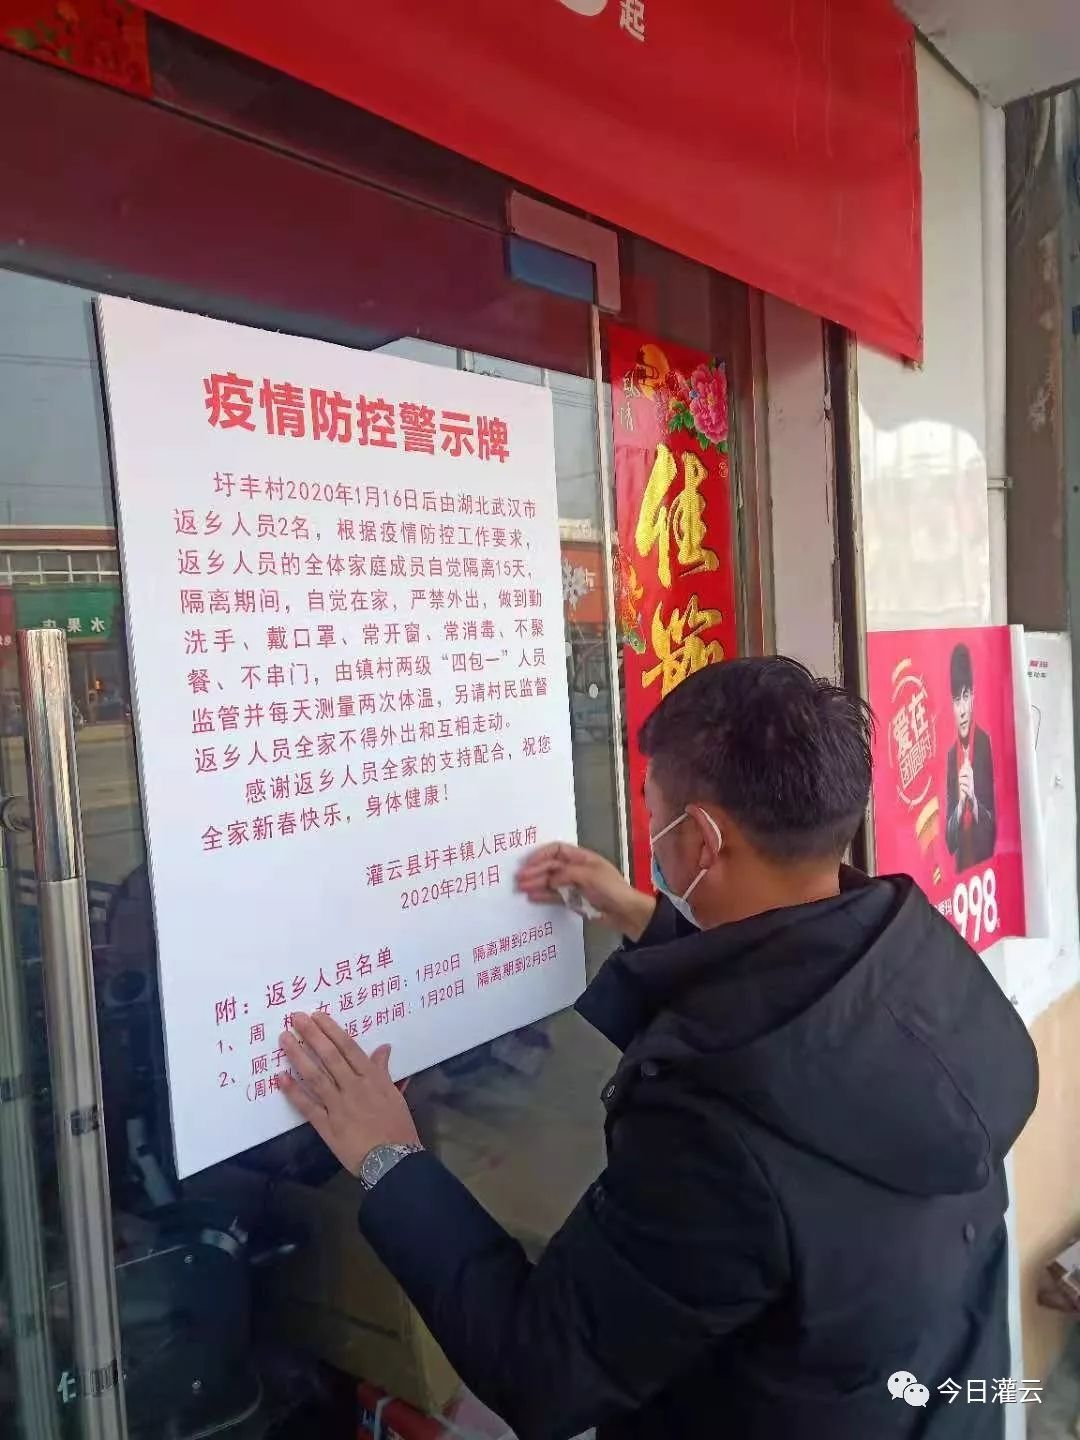 起
疫情防控警示牌
圩丰村2020年1月16日后由湖北武汉市
返乡人员2名，根据疫情防控工作要求，
返乡人员的全体家庭成员自觉隔离15天，
隔离期间，自觉在家，严禁外出，做到勤
洗手、戴口罩、常开窗、常消毒、不聚
餐、不串门，由镇村两级“四包一”人员
监管并每天测量两次体温，另请村民监督
返乡人员全家不得外出和互相走动。
感谢返乡人员全家的支持配合，祝您
全家新春快乐，身体健康！
灌云县圩丰镇人民政府
2020年2月1日
附：返乡人员名单
1、周 梅 女 返乡时间：1月20日 隔离期到2月6日
2、顾子 返乡时间：1月20日 隔离期到2月5日
(周梅
佳节
水果店
爱在
998
今日灌云